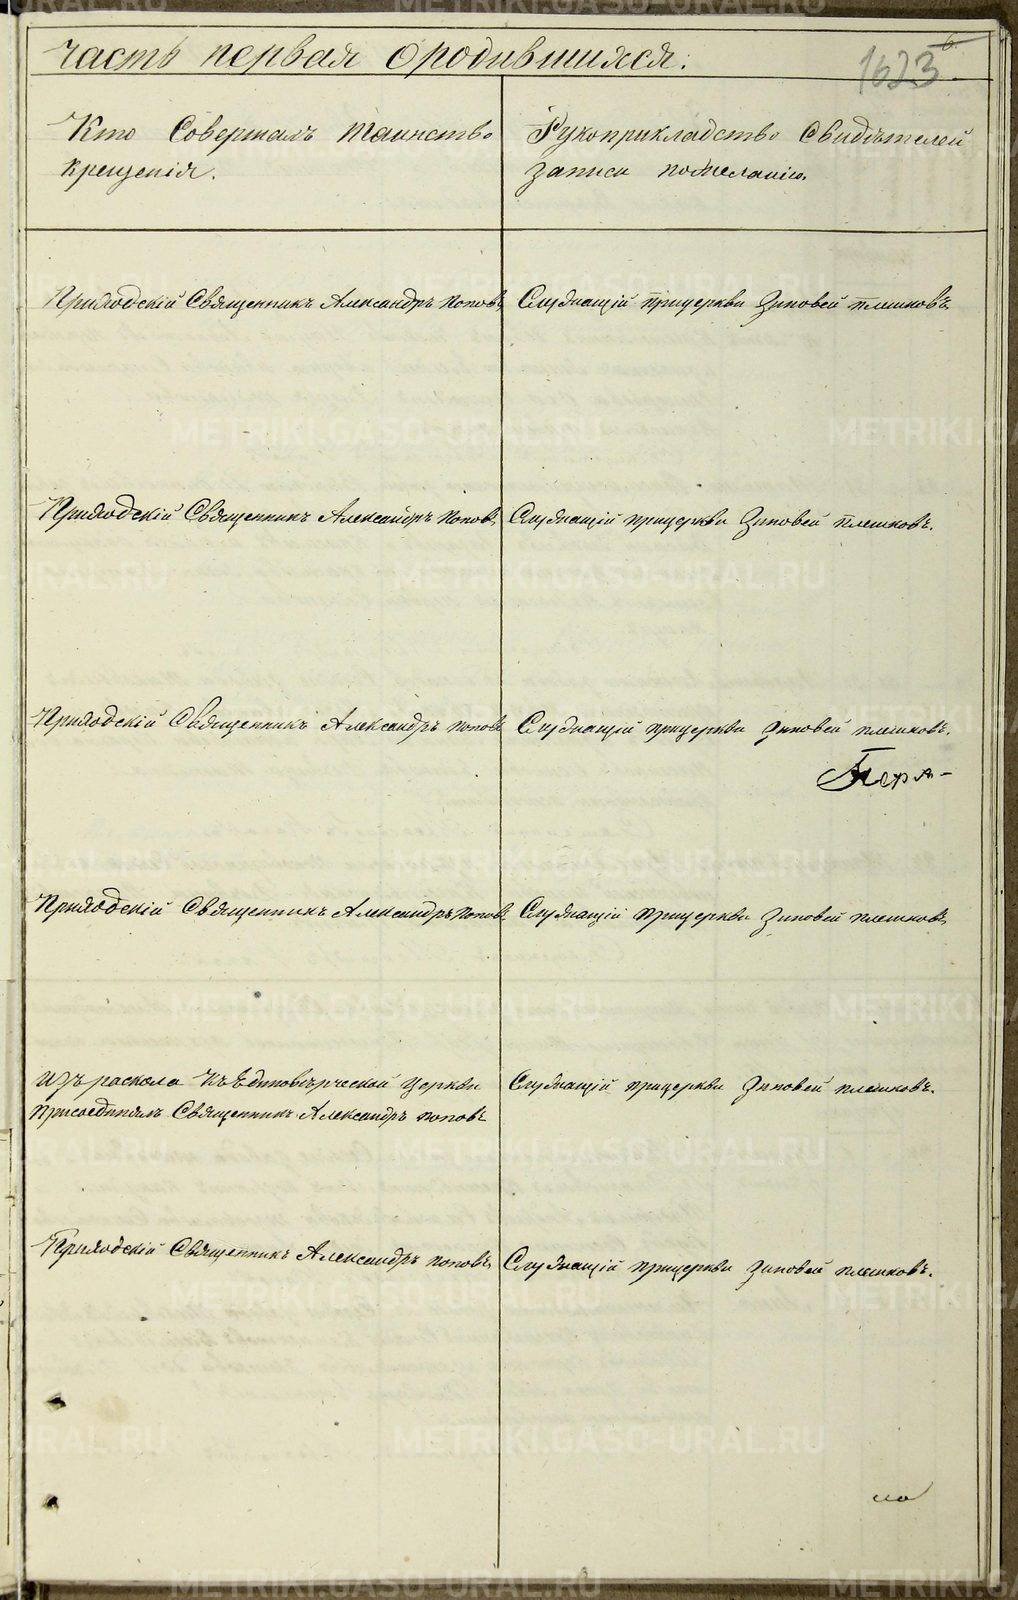 часть первая о родившихся.
6.
1623
Кто Совершалъ таинство
крещенія.
Рукоприкладство Свидѣтелей
записи пожеланію.
Приходскій Священникъ Александръ Поповъ
Служащій прицеркви Зиновей Плешковъ
Приходскій Священникъ Александръ Поповъ
Служащій прицеркви Зиновей Плешковъ.
Приходскій Священникъ Александръ Поповъ
Служащій прицеркви Зиновей Плешковъ.
Приходскій Священникъ Александръ Поповъ
Служащій прицеркви Зиновей Плешковъ
Изъ раскола къ Единовѣрческой церкви
Присоединялъ Священникъ Александръ Поповъ
Служащій прицеркви Зиновей Плешковъ.
Приходскій Священникъ Александръ Поповъ
Служащій прицеркви Зиновей Плешковъ.
METRIKI.GASO-URAL.RU